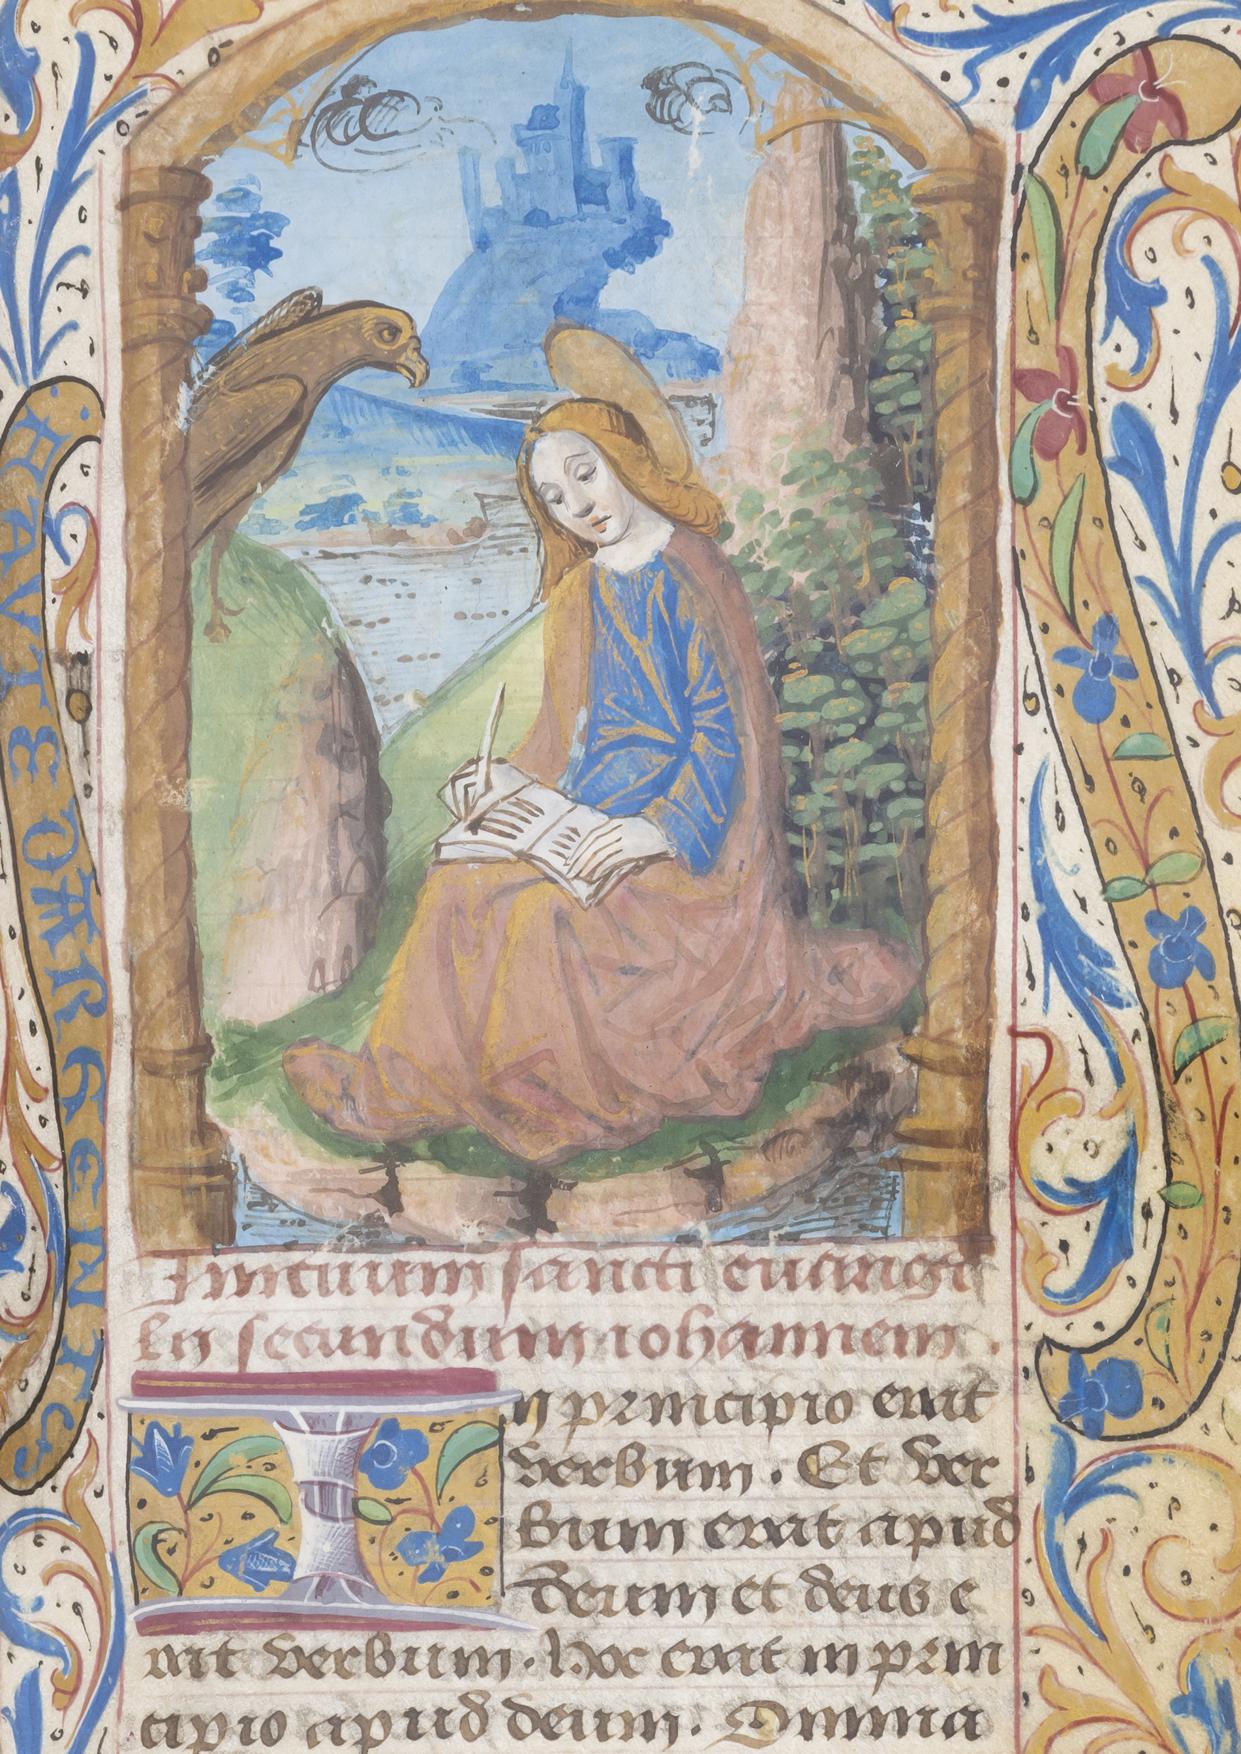 Initium sancti euange
lij secundum iohannem .
In principio erat
verbum . Et ver
bum erat apud
deum et deus e
rat verbum . hoc erat in prin
cipio apud deum . Omnia